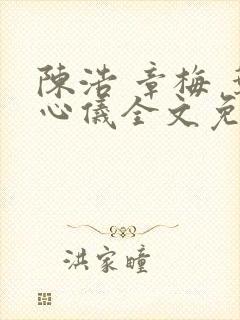 陳浩 章梅
心儀全文免
洪家瞳